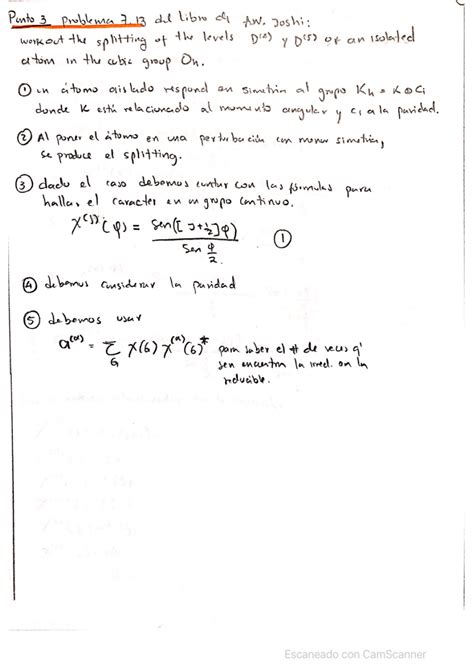 Punto 3 problema 7.13 del libro de A.W. Joshi:
workout the splitting of the levels D⁽⁴⁾ y D⁽⁵⁾ of an isolated
atom in the cubic group Oh.
① un átomo aislado respond en simetría al grupo Kh = K⊗Ci
donde K está relacionado al momento angular y ci a la paridad.
② Al poner el átomo en una perturbación con menor simetría,
se produce el splitting.
③ dado el caso debemos contar con las fórmulas para
hallar el caracter en un grupo continuo.
χ⁽ᴶ⁾(φ) = Sen([J+½]φ) / Sen φ/2 ①
④ debemos considerar la paridad
⑤ debemos usar
a⁽ᵅ⁾ = Σ_G χ(G) χ⁽ᵅ⁾(G)* para saber el # de veces q'
sen encuentra la irred. en la
reducible.
Escaneado con CamScanner